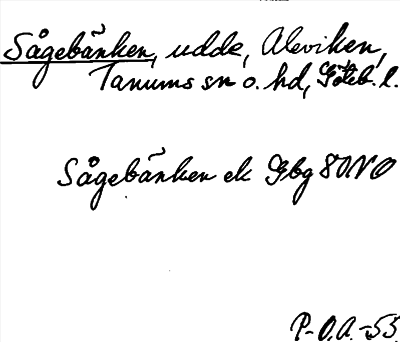 Sågebänken, udde, Aleviken,
Tanums sn o. hd, Göteb. l.
Sågebänken ek Gbg 80 NO
P-O.A.-53